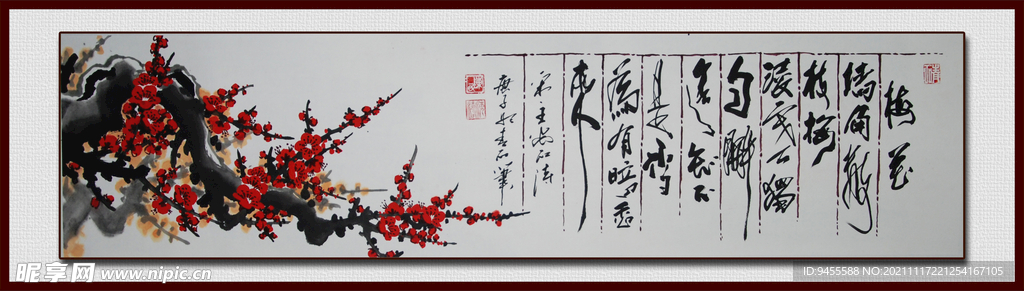 梅花
墙角數
枝梅
凌寒獨
自開
遥知不
是雪
為有暗香
来
宋王安石诗
庚子春
昵享网 www.nipic.cn
ID:9455588 NO:20211117221254167105